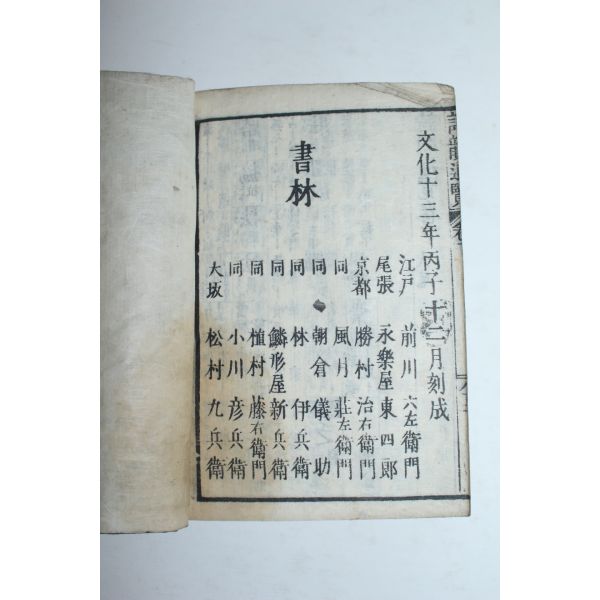 文化十三年丙子十二月刻成
江戸 前川 六左衛門
尾張 永樂屋 東四郎
京都 勝村 治右衛門
同 風月 莊左衛門
同 朝倉 儀助
同 林 伊兵衛
同 鱗形屋 新兵衛
同 植村 藤右衛門
同 小川 彦兵衛
大坂 松村 九兵衛
書林